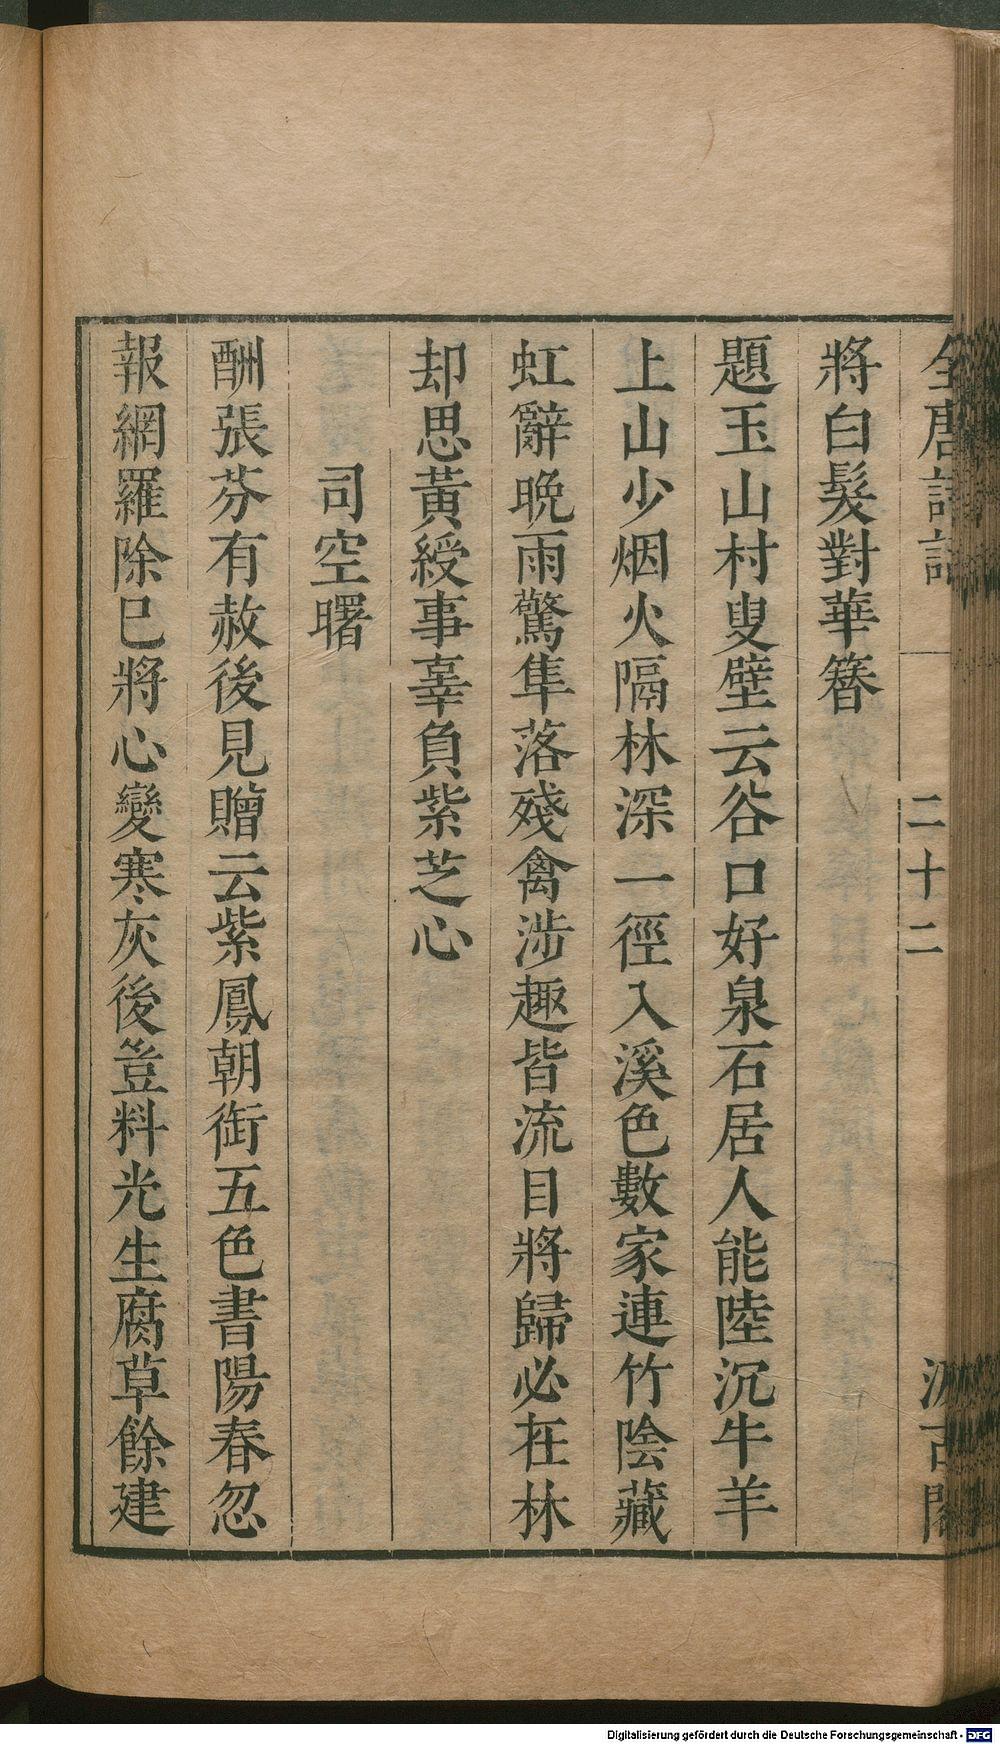 全唐詩話
二十二
汲古閣
將白髮對華簪
題玉山村叟壁云谷口好泉石居人能陸沉牛羊
上山少烟火隔林深一徑入溪色數家連竹陰藏
虹辭晚雨驚隼落殘禽涉趣皆流目將歸必在林
却思黃綬事辜負紫芝心
司空曙
酬張芬有赦後見贈云紫鳳朝銜五色書陽春忽
報網羅除巳將心變寒灰後豈料光生腐草餘建
Digitalisierung gefördert durch die Deutsche Forschungsgemeinschaft - DFG